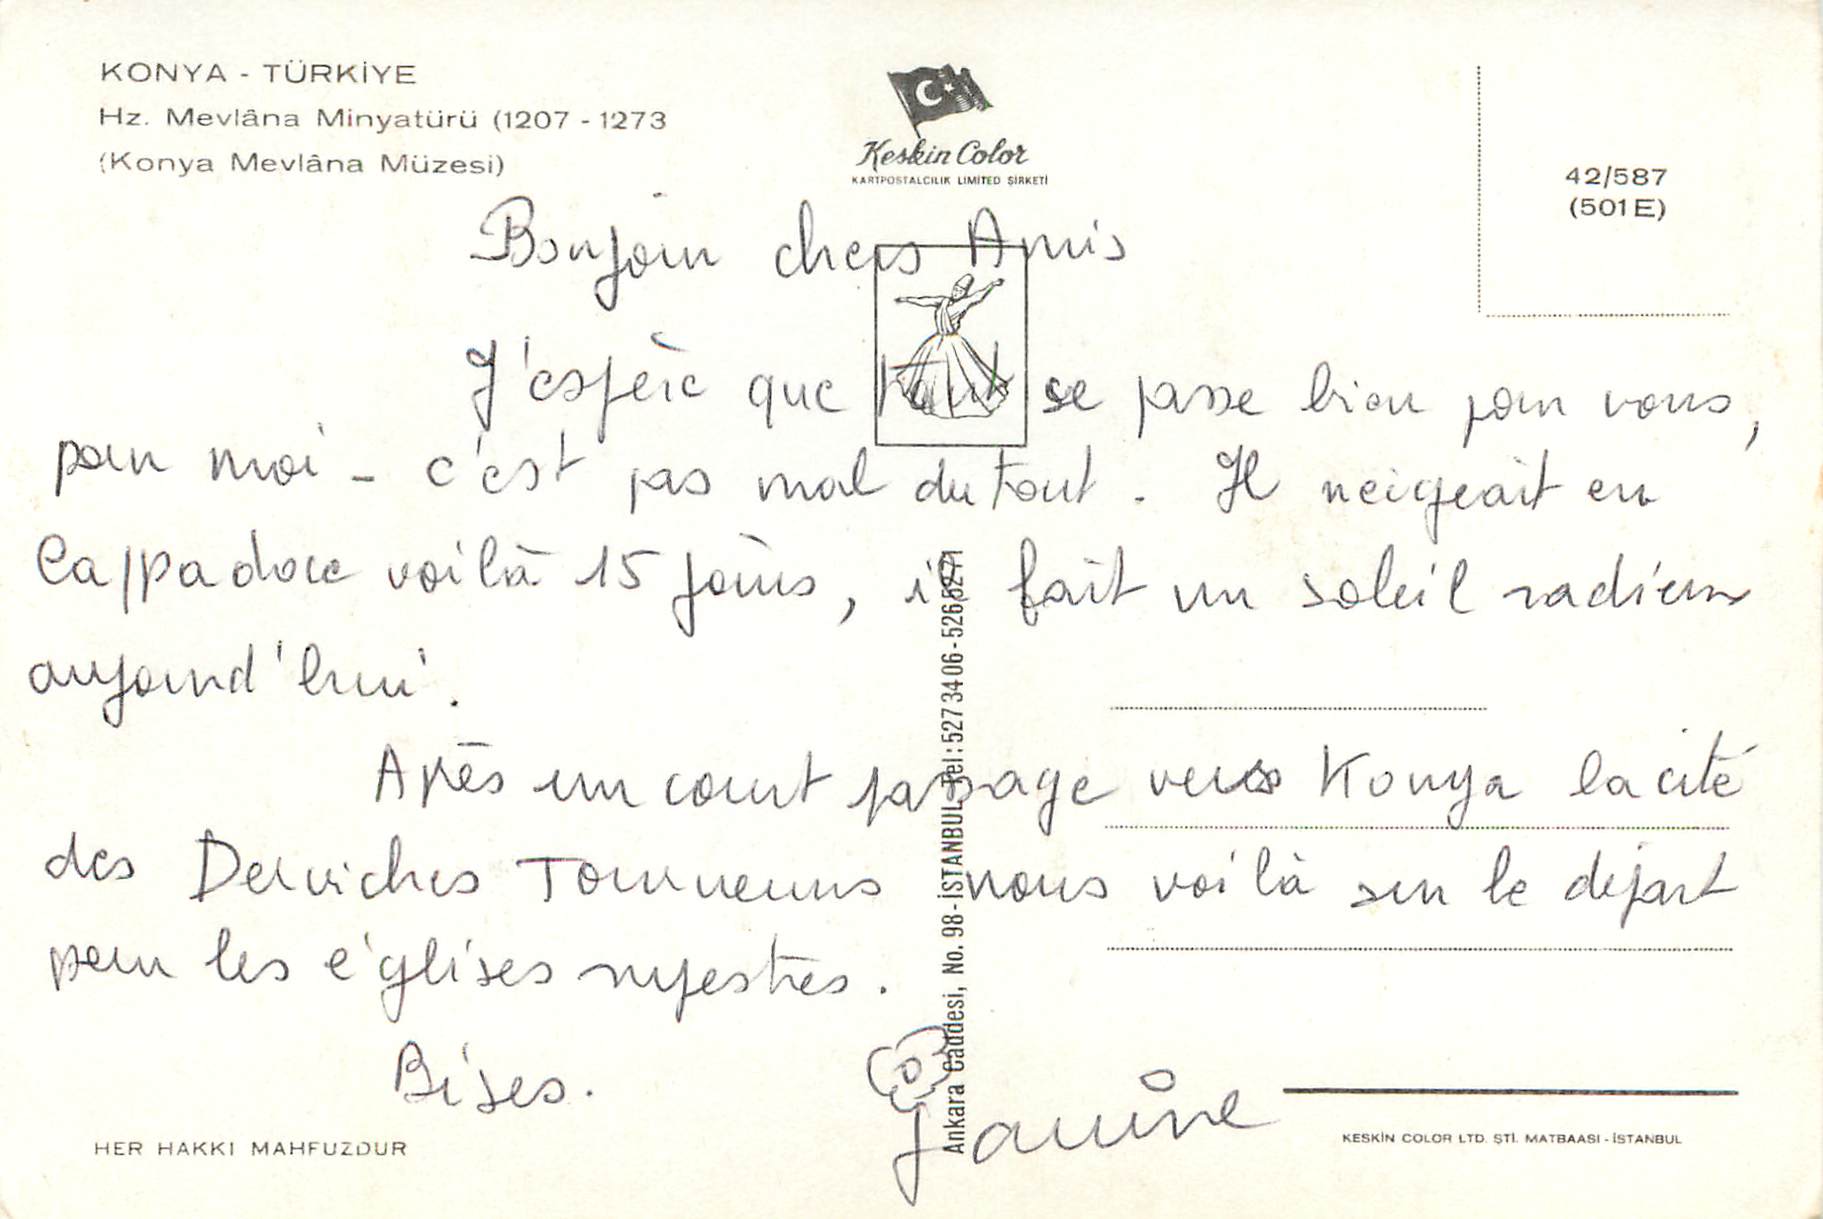 KONYA - TÜRKİYE
Hz. Mevlâna Minyatürü (1207 - 1273
(Konya Mevlâna Müzesi)
Keskin Color
KARTPOSTALCILIK LIMITED ŞİRKETİ
42/587
(501 E)
Bonjour chers Amis
J'espère que tout se passe bien pour vous,
pour moi - c'est pas mal du tout. Il neigeait en
Cappadoce voilà 15 jours, il fait un soleil radieux
aujourd'hui.
Après un court passage vers Konya la cité
des Derviches Tourneurs nous voilà sur le départ
pour les églises rupestres.
Bises.
Janine
Ankara Caddesi, No. 98 - İSTANBUL Tel: 527 34 06 - 526 52 71
HER HAKKI MAHFUZDUR
KESKİN COLOR LTD. ŞTİ. MATBAASI - İSTANBUL